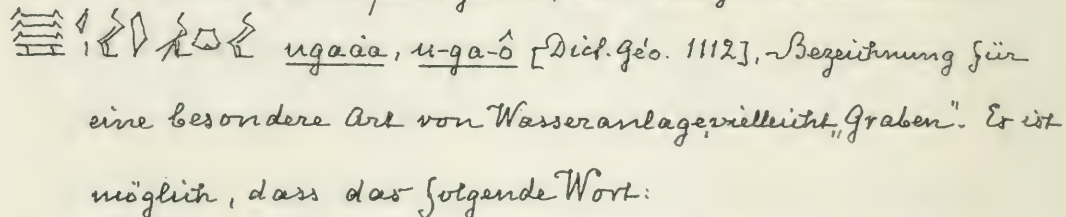 ugaȧa, u-ga-ô [Dict. Géo. 1112], Bezeichnung für
eine besondere Art von Wasseranlage, vielleicht „Graben“. Es ist
möglich, dass das folgende Wort: